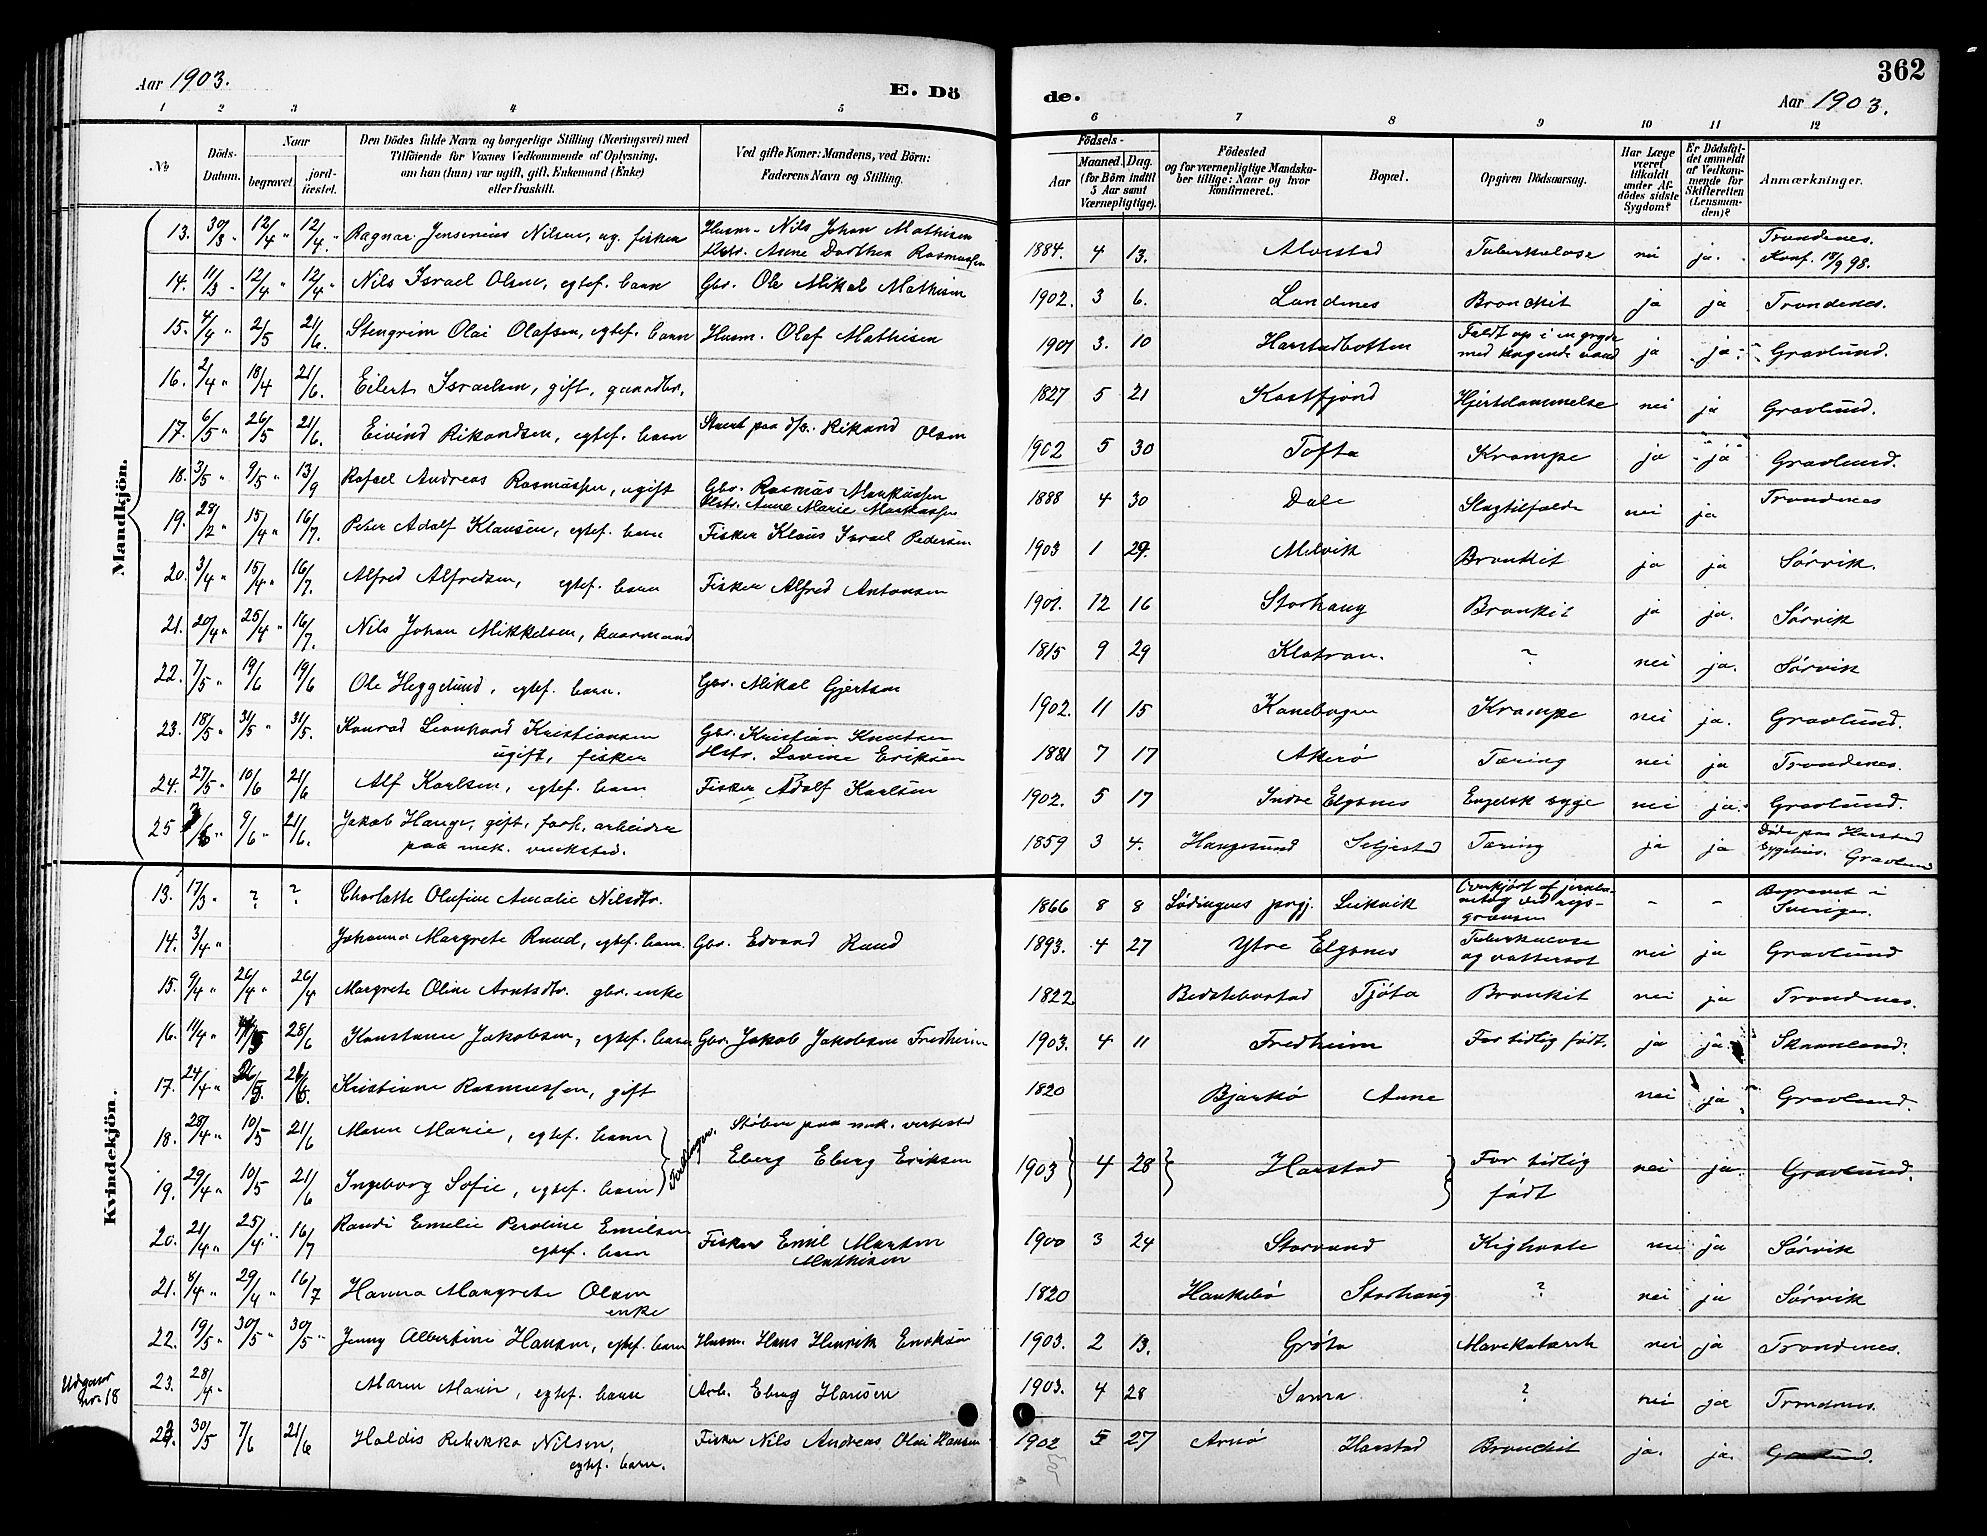 Aar 1903.
E. Dö
de.
362
Aar 1903.
1 2 3 4 5 6 7 8 9 10 11 12
No
Döds-Datum.
Naar
begravet.
jord-fæstet.
Den Dödes fulde Navn og borgerlige Stilling (Næringsvei) med
Tilföiende for Voxnes Vedkommende af Oplysning,
om han (hun) var ugift, gift, Enkemand (Enke)
eller fraskilt.
Ved gifte Koner: Mandens, ved Börn:
Faderens Navn og Stilling.
Födsels-
Aar
Maaned. Dag.
(for Börn indtil
5 Aar samt
Værnepligtige).
Födested
og for værnepligtige Mandska-
ber tillige: Naar og hvor
konfirmeret.
Bopæl.
Opgiven Dödsaarsag.
Har Læge
været
tilkaldt
under Af-
dödes sidste
Sygdom?
Er Dödsfal-
det anmeldt
af Vedkom-
mende for
Skifteretten
(Lensman-
den)?
Anmærkninger.
Mandkjön.
13. 30/3 " 12/4 " 12/4 " Ragnar Jensenius Nilsen, ug. fisker Husm. Nils Johan Mathisen Anne Dorthea Rasmussen 1884. 4 13. Tuberkulose nei ja. Trondenes. Konf. 18/9 98.
14. 11/3 " 12/4 " 12/4 " Nils Israel Olsen, egtef. barn Gbr. Ole Mikal Mathisen 1902. 3 6. Lundenes Bronchit ja ja Trondenes.
15. 4/4 " 2/5 21/6. Stengrim Olai Olafsen, egtef. barn Husm. Olaf Mathisen 1901 3. 10 Harstadbotten Faldt op i en gryde med kogende vand ja ja Gravlund.
16. 2/4 " 18/4 21/6. Eilert Israelsen, gift, gaardbr. 1827 5 21 Kastfjord Hjertelammelse nei ja Gravlund.
17. 6/5 " 26/5 21/6. Eivind Rikardsen, egtef. barn paa d/s. Rikard Olsen 1902 5 30 Tofta Krampe ja ja Gravlund.
18. 3/5 " 9/5 " 13/9 Rafael Andreas Rasmussen, ugift Gbr. Rasmus Markussen Hstr. Anne Marie Markussen 1888 4 30 Dale Slagtilfælde nei ja Trondenes
19. 28/2 " 15/4 " 16/7. Peter Adolf Klausen, egtef. barn Fisker Klaus Israel Pedersen 1903 1 29. Melvik Bronkit ja ja Sørvik.
20. 3/4 " 15/4 " 16/7. Alfred Alfredsen, egtef. barn Fisker Alfred Antonsen 1901. 12 16 Storhaug Bronkit ja ja. Sørvik
21. 20/4 " 25/4 " 16/7. Nils Johan Mikkelsen, kaarmand 1815 9 29 Klatran. ? nei ja. Sørvik
22. 7/5 " 19/6 19/6 Ole Heggelund, egtef. barn. Gbr. Mikal Gjertsen 1902. 11 15 Kanebogen Krampe nei ja. Gravlund.
23. 18/5 " 31/5 " 31/5. Konrad Leonhard Kristiansen ugift, fisker Gbr. Kristian Knutsen Hstr. Lovine Eriksen 1881 7 17 Akerø Tæring nei ja Trondenes.
24. 27/5 " 10/6 21/6 Alf Karlsen, egtef. barn Fisker Adolf Karlsen 1902. 5 17 Indre Elgsnes Engelsk syge nei ja. Gravlund.
25 9/6 " 21/6. Jakob Hauge, gift, forh. arbeider paa mek. verksted. 1859 3 4. Haugesund Seljestad Tæring ja ja Døde paa Harstad sygehus. Gravlund
Kvindekjön.
13. 17/3 " ? ? Charlotte Olufine Amalie Nilsdtr. 1866 8 8 Lødingens prgj. Leikvik Overkjørt af jernbanetog ved rigsgrænsen - - Begravet i Sverige.
14. 3/4 " Johanna Margrete Ruud, egtef. barn. Gbr. Edvard Ruud 1893. 4 27 Ytre Elgsnes Tuberkulose og vattersot nei ja Gravlund
15. 9/4 " 26/4 " 26/4 Margrete Oline Arntsdtr. gbr. enke 1822 Tjøta Bronkit nei ja Trondenes.
16. 11/4 " 28/6 Konstanse Jakobsen, egtef. barn Gbr. Jakob Jakobsen Fredheim 1903. 4 11 Fredheim For tidlig født. ja ja. Skaanland.
17. 24/4 " Kristiane Rasmussen, gift 1820 Bjarkø Aune nei ja Gravlund.
18. 28/4 " 10/5 21/6 Maren Marie, egtef. barn } Tvillinger. Støber paa mek. verksted
19. 29/4 " 10/5 21/6 Ingeborg Sofie, egtef. barn } Eberg Eberg Eriksen 1903 } 4 28 } Harstad } For tidlig født nei ja Gravlund.
20. 21/4 " 25/4 " 16/7 Randi Emelie Peroline Emilsen egtef. barn Fisker Emil Marten Mathisen 1900 3 24 Storvand Kighoste nei ja Sørvik
21. 8/4 " 29/4 " 16/7 Hanna Margrete Olsen enke 1820 Haukebø Storhaug ? nei ja Sørvik
22. 19/5 " 30/5 " 30/5 " Jenny Albertine Hansen, egtef. barn Husm. Hans Henrik Eriksen 1903. 2 13. Grøta Mavekatarrh nei ja Trondenes.
Udgaar nr. 18
23. 28/4 Maren Marie, egtef. barn Arb. Eberg Hansen 1903. 4 28 Sama ? nei ja Trondenes.
23. 30/5 7/6 21/6 Haldis Rebekka Nilsen, egtef. barn. Fisker Nils Andreas Olai Hansen 1902 5 27 Arnø Harstad Bronchit ja. ja. Gravlund.